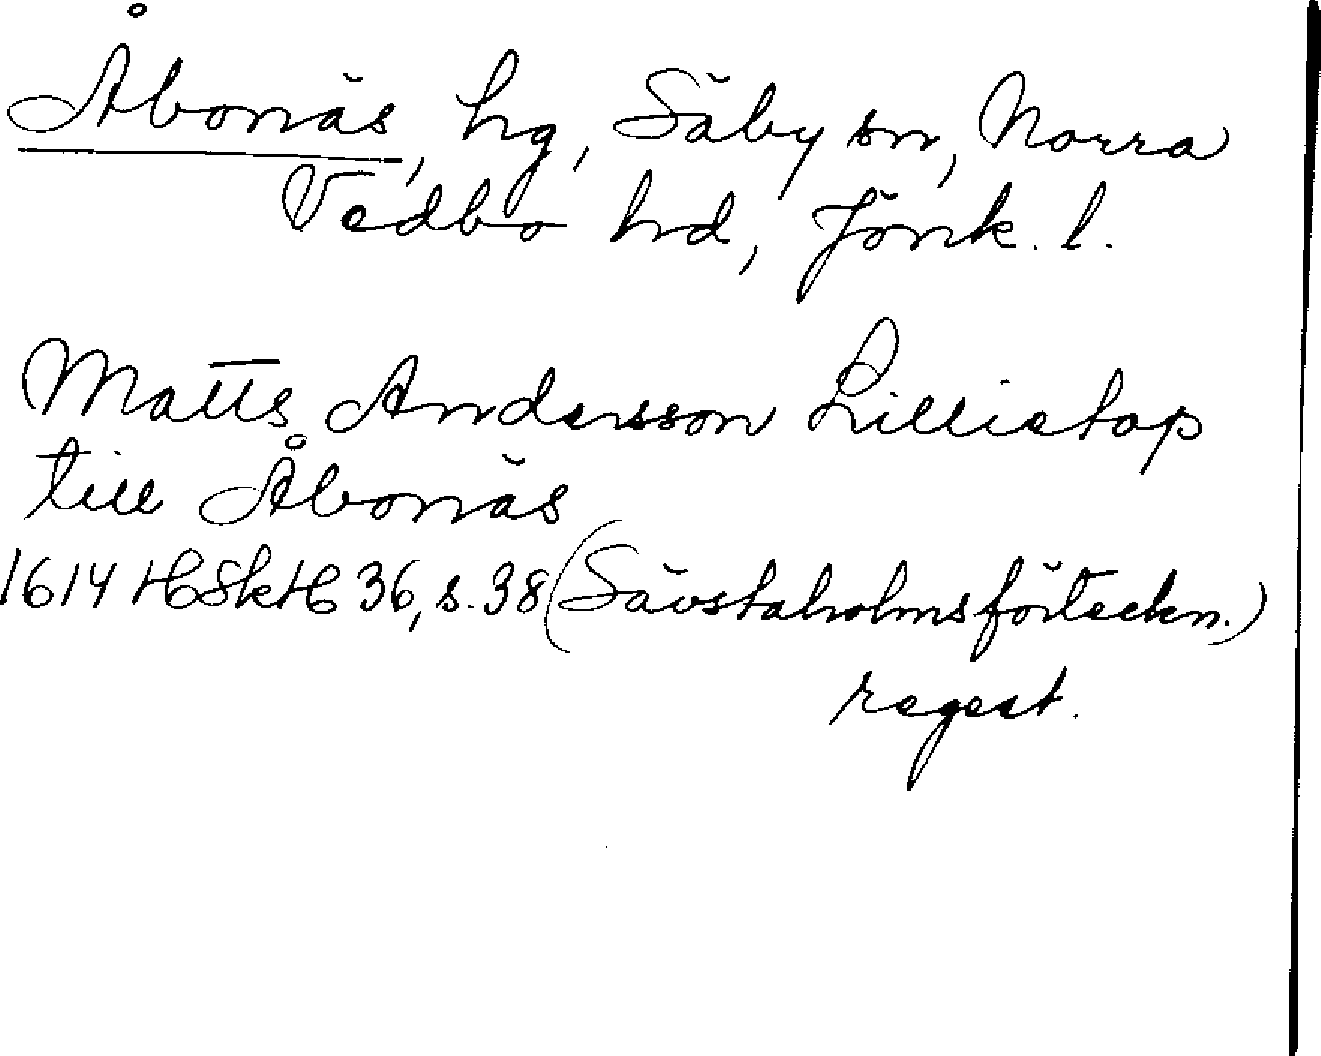 Åbonäs, hg, Säby sn, Norra
Vedbo hd, Jönk. l.
Matts Andersson Lilliehop
till Åbonäs
1614 HSkH 36, s. 38 (Sävstaholmsförteckn.)
regest.